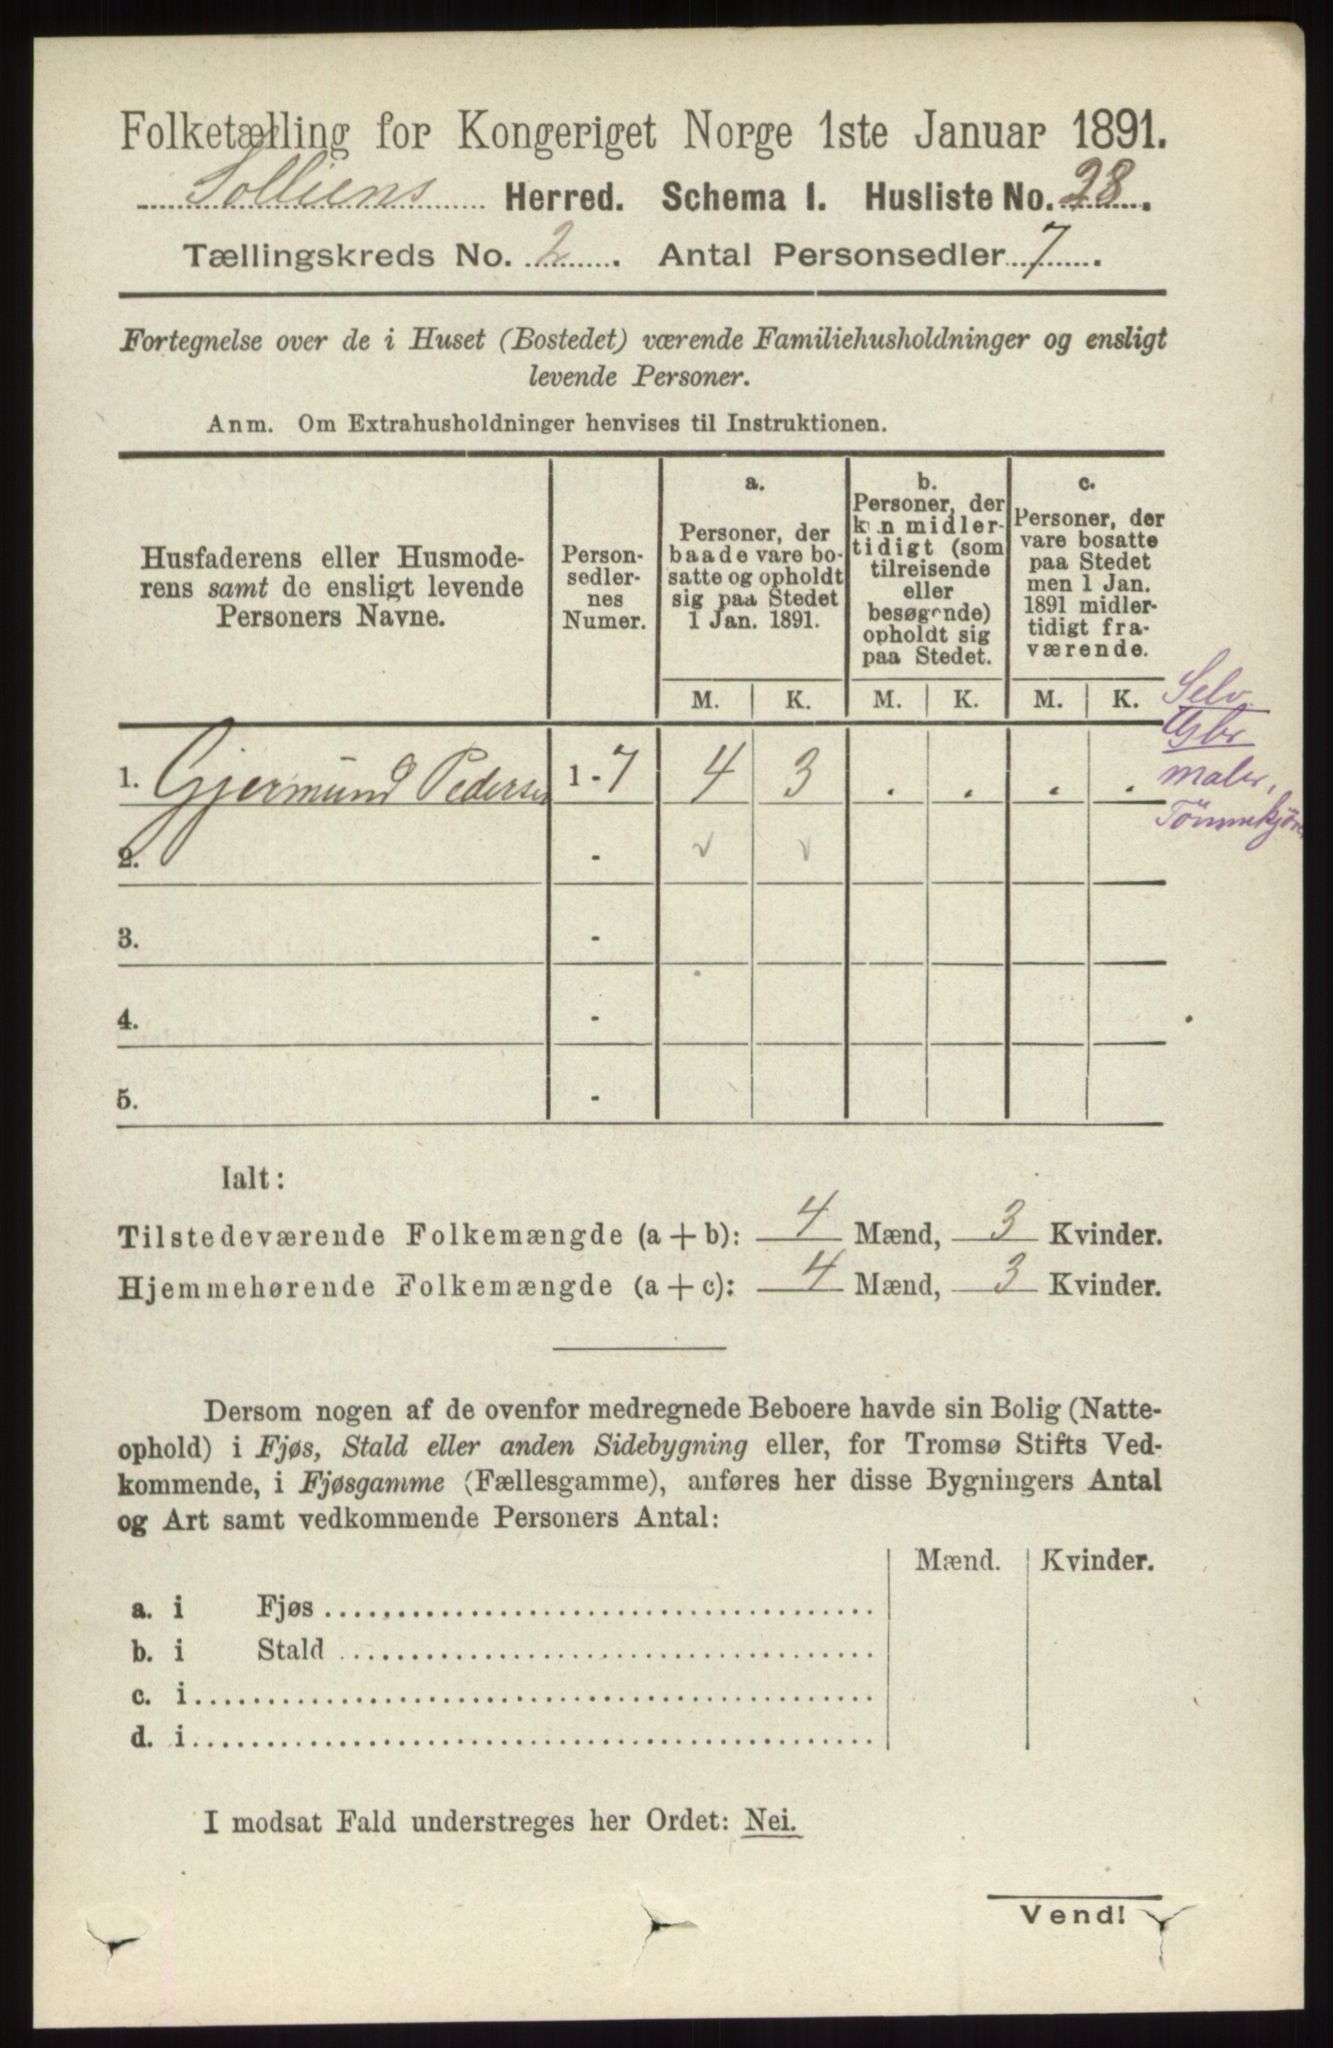 Folketælling for Kongeriget Norge 1ste Januar 1891.
Solliens Herred. Schema I. Husliste No. 28.
Tællingskreds No. 2. Antal Personsedler 7.
Fortegnelse over de i Huset (Bostedet) værende Familiehusholdninger og ensligt
levende Personer.
Anm. Om Extrahusholdninger henvises til Instruktionen.
Husfaderens eller Husmode-
rens samt de ensligt levende
Personers Navne.
Person-
sedler-
nes
Numer.
a.
Personer, der
baade vare bo-
satte og opholdt
sig paa Stedet
1 Jan. 1891.
b.
Personer, der
kun midler-
tidigt (som
tilreisende
eller
besøgende)
opholdt sig
paa Stedet.
c.
Personer, der
vare bosatte
paa Stedet
men 1 Jan.
1891 midler-
tidigt fra-
værende.
M. K. M. K. M. K.
Selv
Gbr
maler,
Tömmerkjörer
1. Gjermund Pedersen 1 - 7 4 3 . . . .
2. - ✓ ✓
3. -
4. -
5. -
Ialt:
Tilstedeværende Folkemængde (a + b): 4 Mænd, 3 Kvinder.
Hjemmehørende Folkemængde (a + c): 4 Mænd, 3 Kvinder.
Dersom nogen af de ovenfor medregnede Beboere havde sin Bolig (Natte-
ophold) i Fjøs, Stald eller anden Sidebygning eller, for Tromsø Stifts Ved-
kommende, i Fjøsgamme (Fællesgamme), anføres her disse Bygningers Antal
og Art samt vedkommende Personers Antal:
Mænd. Kvinder.
a. i Fjøs
b. i Stald
c. i
d. i
I modsat Fald understreges her Ordet: Nei.
Vend!